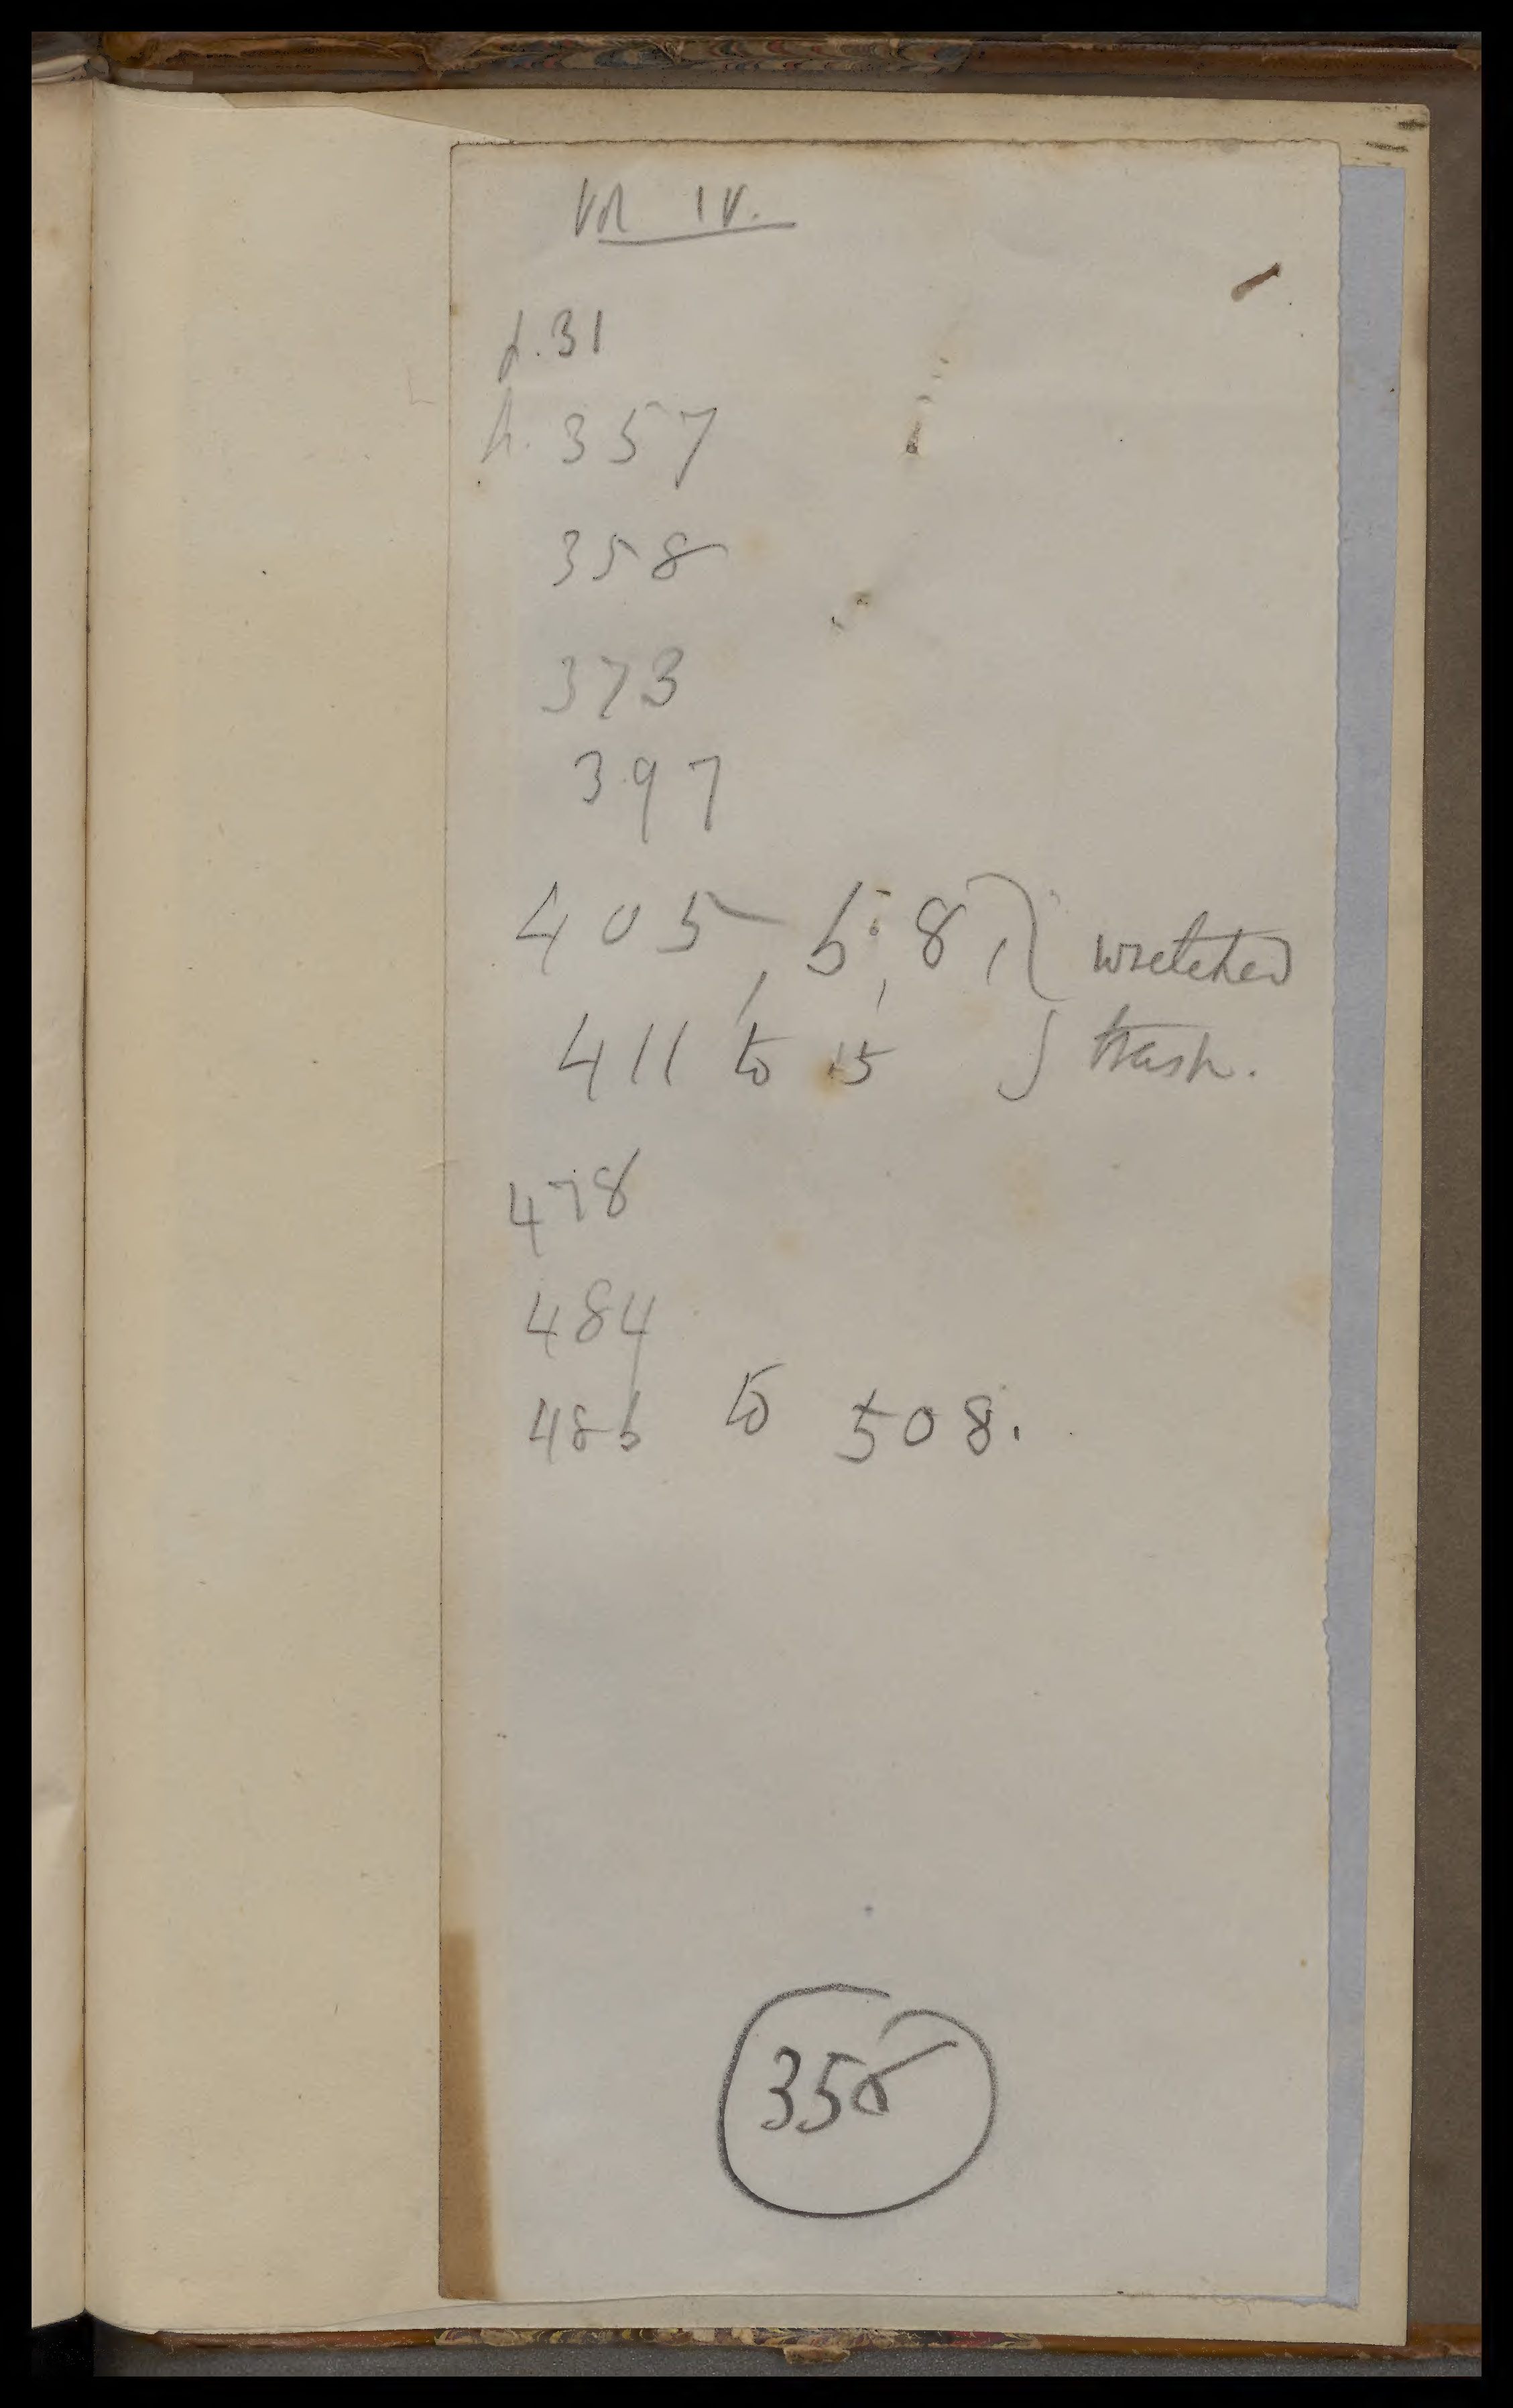 Vol IV.
p. 31
p. 357
358
373
397
405, 6, 8, } wretched
411 to 15 } trash.
478
484
486 to 508.
358